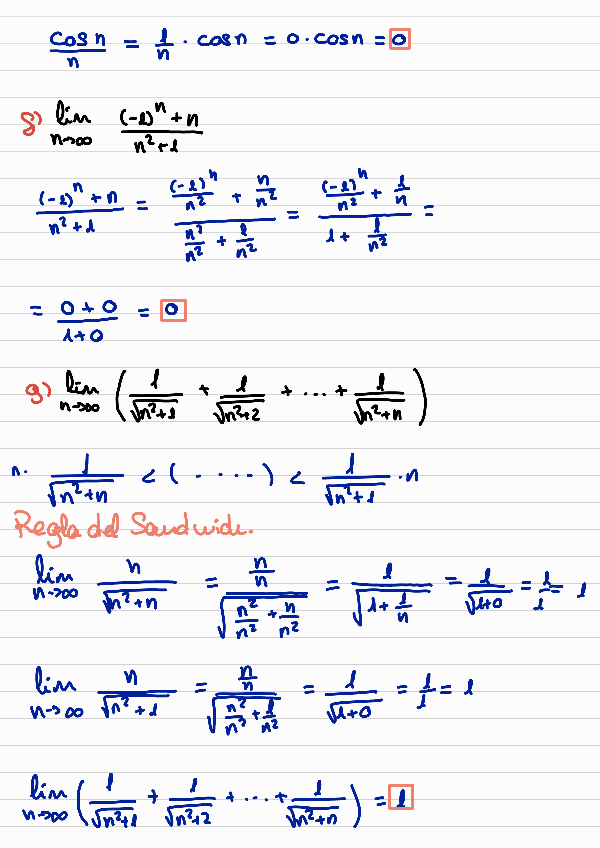 cos n / n = 1/n · cos n = 0 · cos n = 0
f) lim n→∞ ((-1)^n + n) / (n² + 1)
((-1)^n + n) / (n² + 1) = ((-1)^n/n² + n/n²) / (n²/n² + 1/n²) = ((-1)^n/n² + 1/n) / (1 + 1/n²) =
= (0 + 0) / (1 + 0) = 0
g) lim n→∞ (1/√(n²+1) + 1/√(n²+2) + ... + 1/√(n²+n))
n · 1/√(n²+n) < (·····) < 1/√(n²+1) · n
Regla del Sandwich.
lim n→∞ n/√(n²+n) = (n/n) / √(n²/n² + n/n²) = 1/√(1 + 1/n) = 1/√(1+0) = 1/1 = 1
lim n→∞ n/√(n²+1) = (n/n) / √(n²/n² + 1/n²) = 1/√(1+0) = 1/1 = 1
lim n→∞ (1/√(n²+1) + 1/√(n²+2) + ... + 1/√(n²+n)) = 1